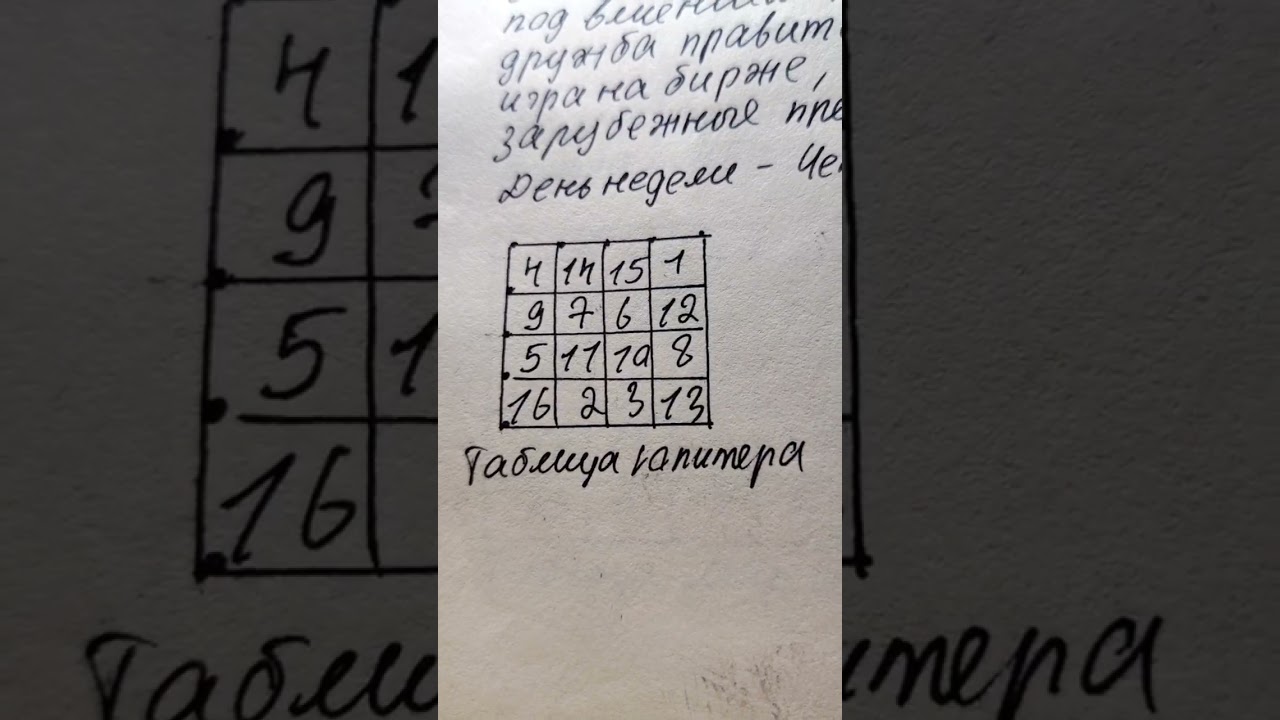 дружба правит
игра на бирже,
зарубежные пре
День недели - Че
4 14 15 1
9 7 6 12
5 11 10 8
16 2 3 13
Таблица Юпитера